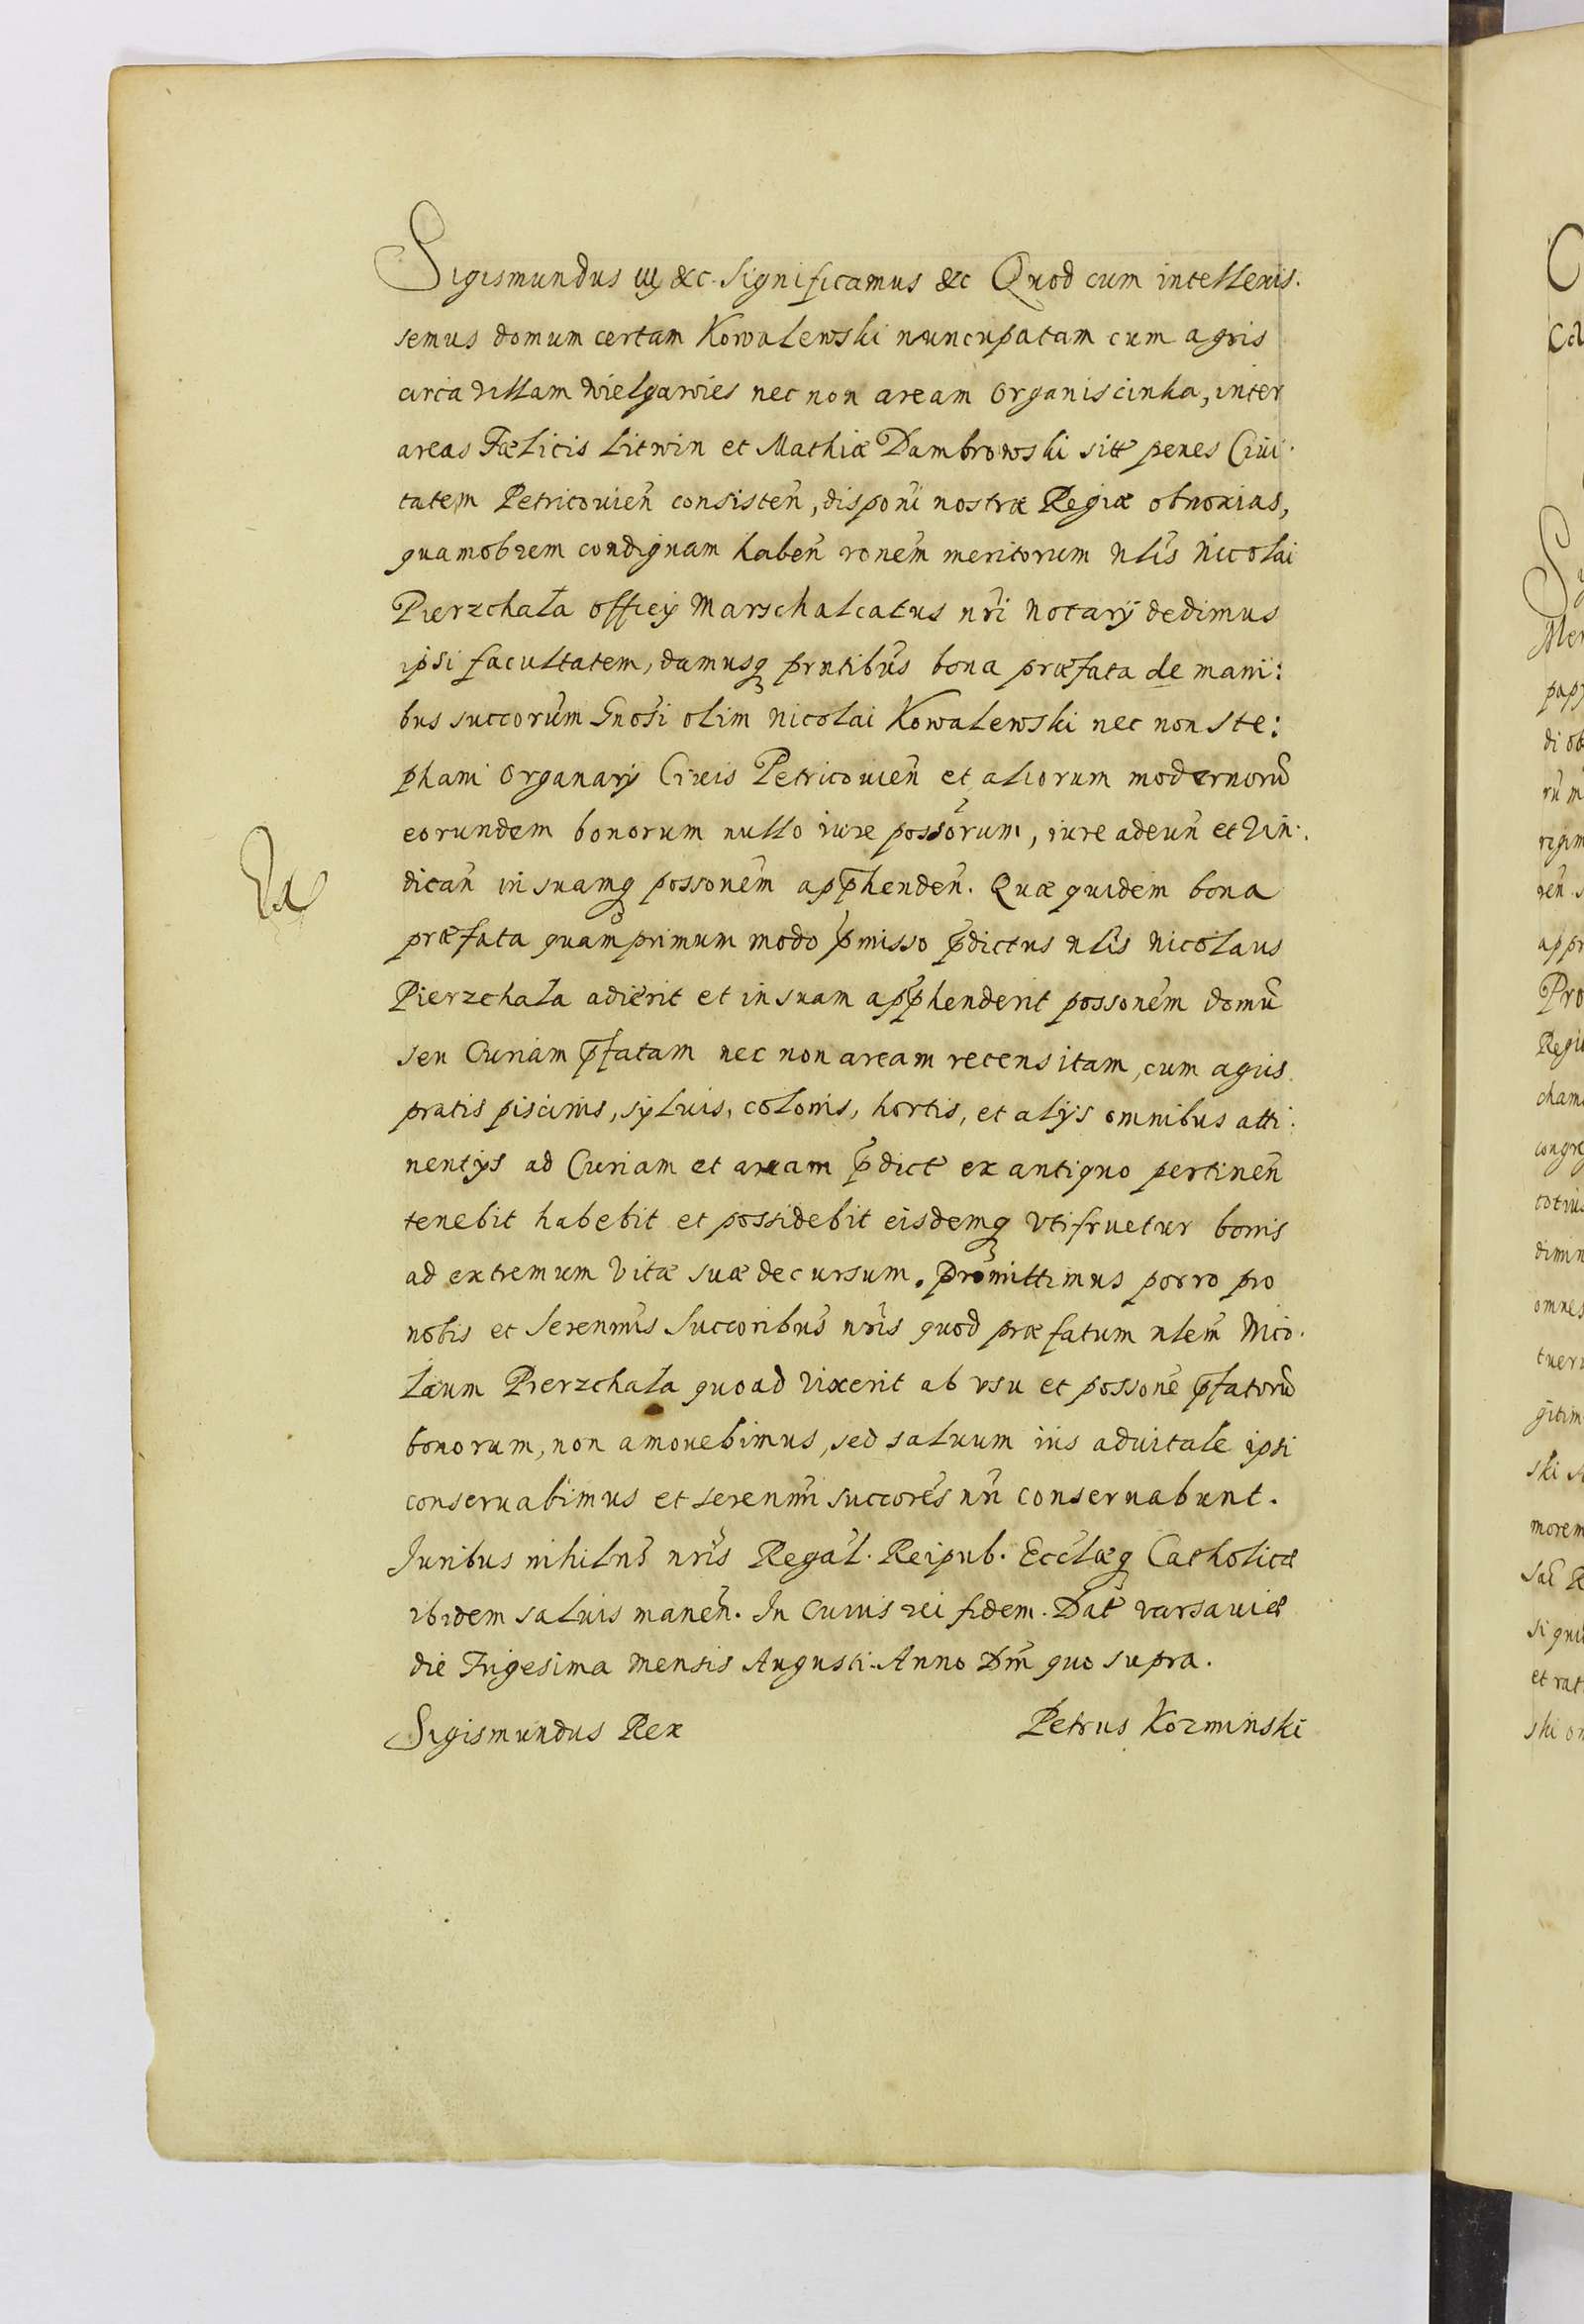 Sigismundus III &c. Significamus &c Quod cum intellexis.
semus domum certam Kowalewski nuncupatam cum agris
circa villam Wielgawies nec non aream Organiscinka, inter
areas Fælicis Litwin et Mathiæ Dambrowski sitt penes Ciui.
tatem Petricouień consisteń, disponi nostræ Regiæ obnoxias,
quamobrem condignam habeń roneḿ meritorum nlis Nicolai
Pierzchała officij Marschalcatus nri Notarij dedimus
ipsi facultatem, damusq prntibus bona præfata de mani:
bus succorum Gnosi olim Nicolai Kowalewski nec non Ste:
phani Organarij Ciuis Petricouień et aliorum modernorū
eorundem bonorum nullo iure possorum, iure adeuń et Vin.
dicań in suamq possonem app̄hendeń. Quæ quidem bona
præfata quamprimum modo p̄misso p̄dictus nlis Nicolaus
Pierzchała adierit et in suam app̄henderit possonem domū
seu Curiam p̄fatam nec non aream recensitam, cum agris
pratis piscinis, syluis, colonis, hortis, et alijs omnibus atti.
nentijs ad Curiam et aream p̄dict ex antiquo pertineń
tenebit habebit et possidebit eisdemq vtifruetur bonis
ad extremum Vitæ suæ decursum. Promittimus porro pro
nobis et Serenmis Succoribus nris quod præfatum nlem Nico.
laum Pierzchała quoad Vixerit ab vsu et possone p̄fatorū
bonorum, non amouebimus, sed saluum ius aduitale ipsi
conseruabimus et serenmi succores nri conseruabunt.
Iuribus nihilns nris Regal. Reipub. Ecclæq Catholicæ
ibidem saluis maneń. In Cuius rei fidem. Dat Varsauiæ
die Trigesima Mensis Augusti. Anno Dm̄ quo supra.
Sigismundus Rex Petrus Kozminski